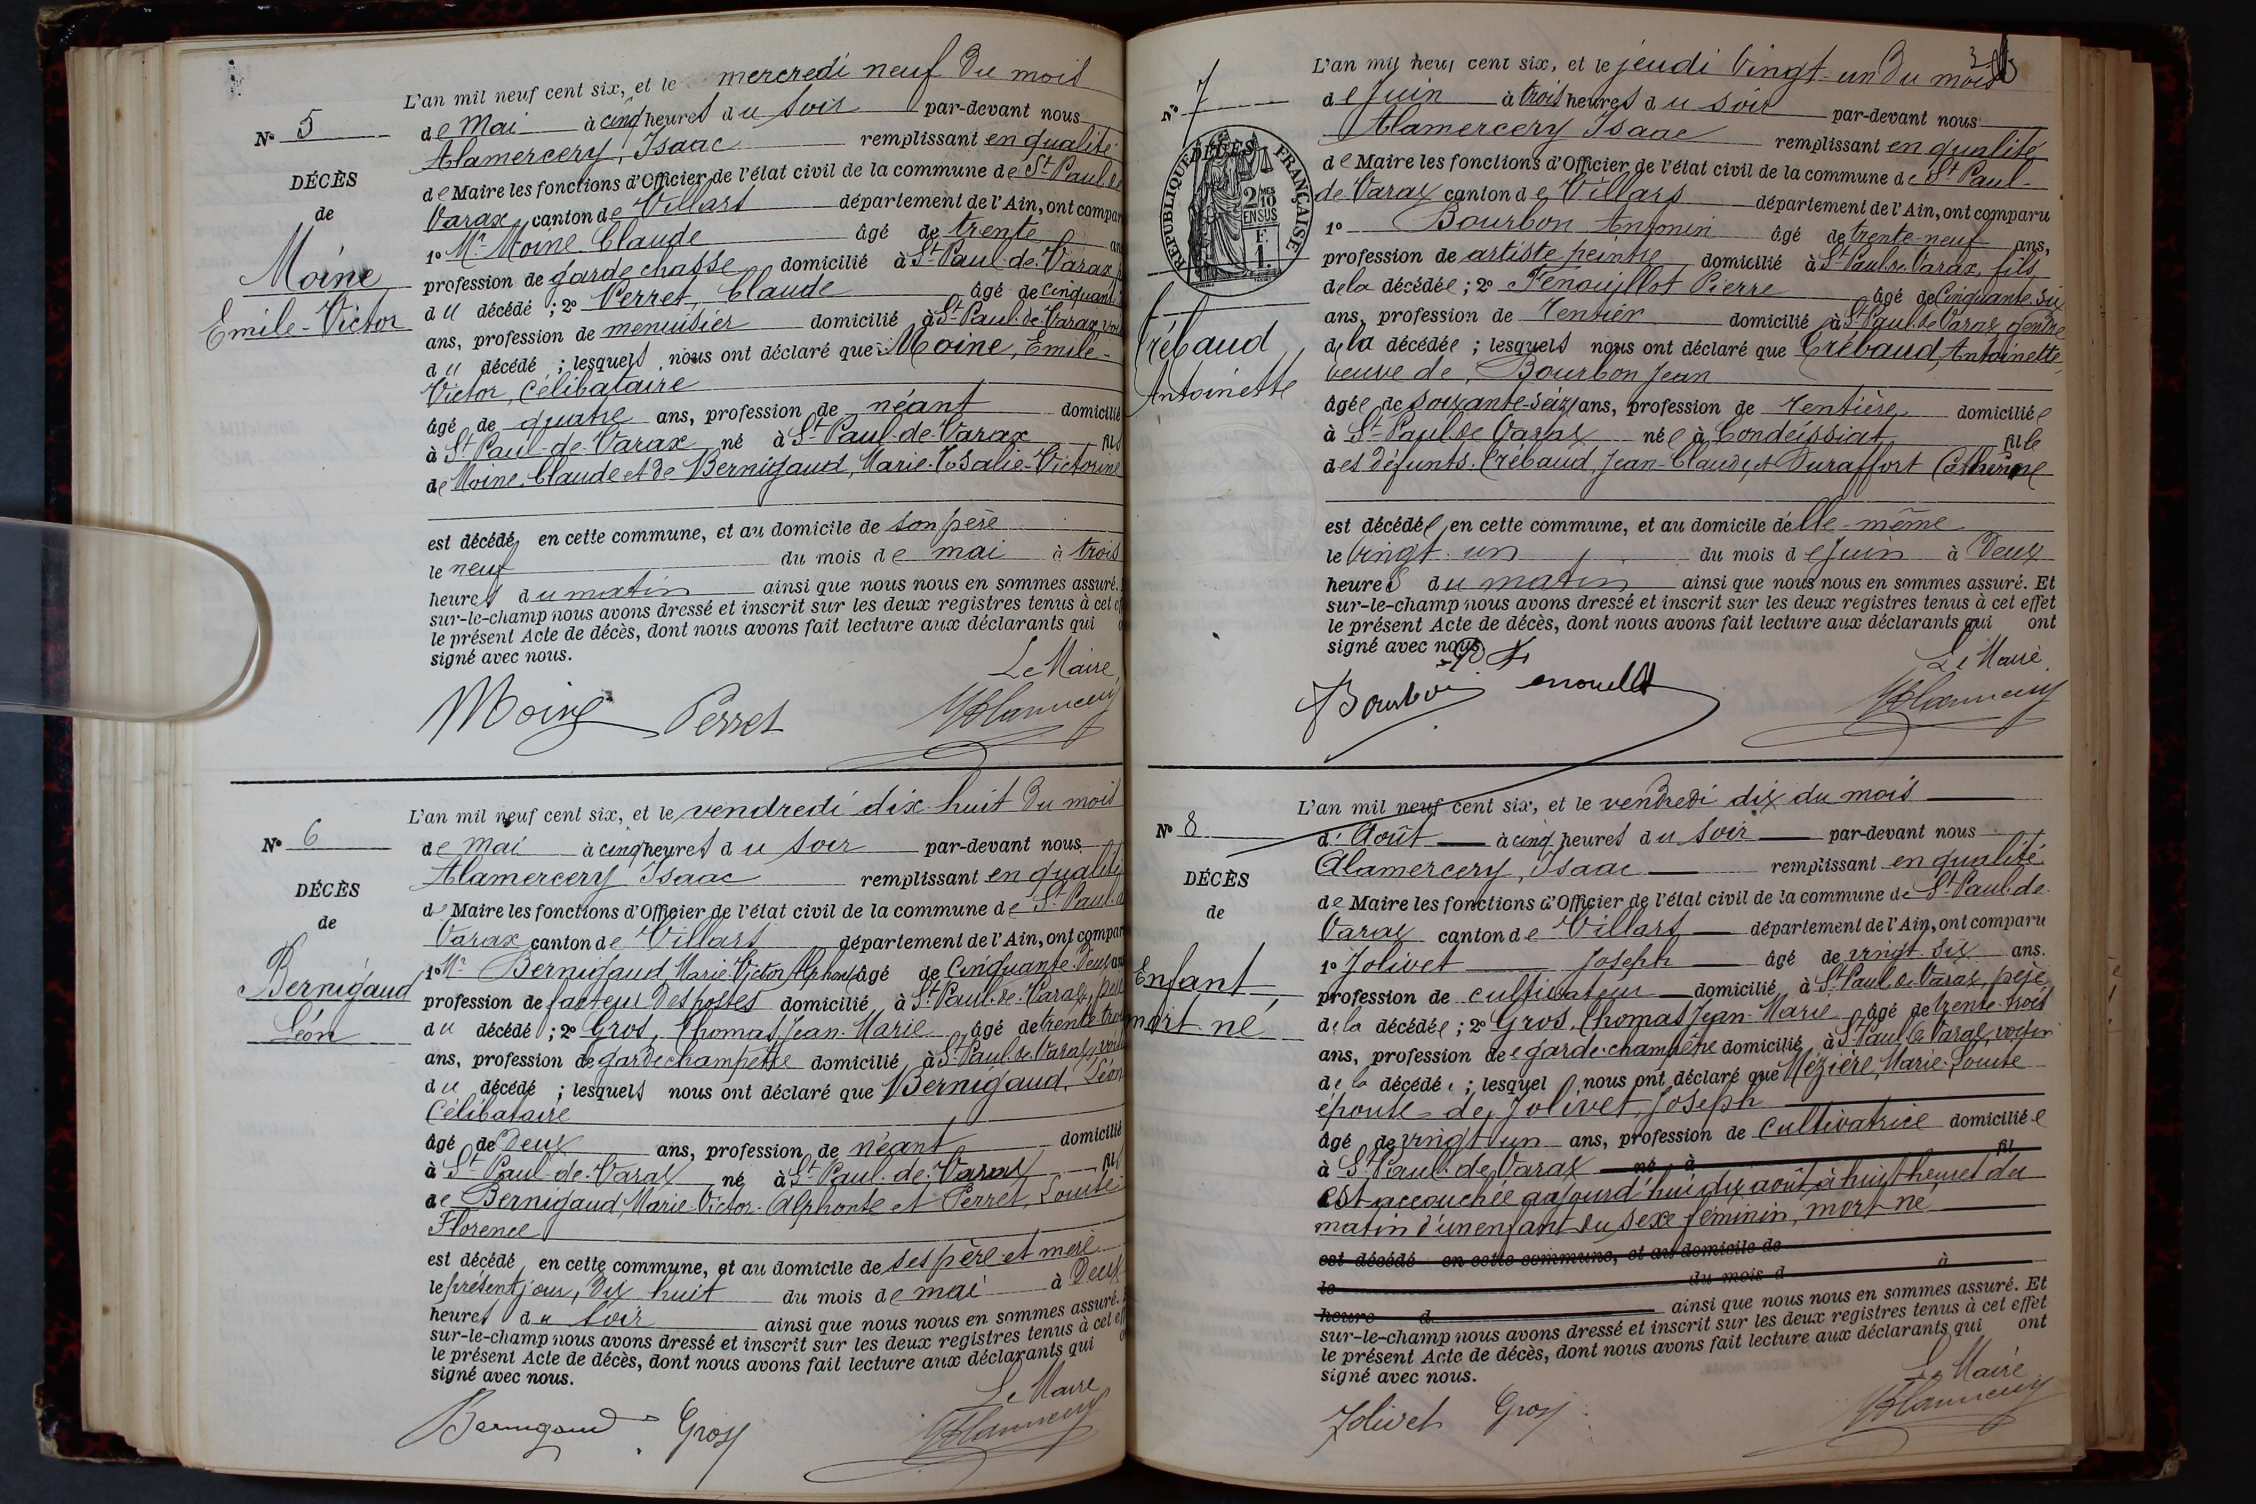 L'an mil neuf cent six, et le mercredi neuf du mois
de Mai à cinq heures du soir par-devant nous
Alamercery, Isaac remplissant en qualité
de Maire les fonctions d'Officier de l'état civil de la commune de St Paul de
Varax canton de Villars département de l'Ain, ont compar
1º Mr Moine Claude âgé de trente an
profession de garde chasse domicilié à St Paul-de-Varax
du décédé ; 2º Perret, Claude âgé de cinquante
ans, profession de menuisier domicilié à St Paul-de-Varax, voi
du décédé ; lesquels nous ont déclaré que Moine, Emile-
Victor, célibataire
âgé de quatre ans, profession de néant domicilié
à St Paul-de-Varax né à St Paul-de-Varax fils
de Moine Claude et de Bernigaud, Marie-Rosalie-Victorine
est décédé en cette commune, et au domicile de son père
le neuf du mois de mai à trois
heures du matin ainsi que nous nous en sommes assuré.
sur-le-champ nous avons dressé et inscrit sur les deux registres tenus à cet ef
le présent Acte de décès, dont nous avons fait lecture aux déclarants qui o
signé avec nous.
Le Maire,
Moine Perret
Nº 5
DÉCÈS
de
Moine
Emile-Victor
L'an mil neuf cent six, et le vendredi dix-huit du mois
de Mai à cinq heures du soir par-devant nous
Alamercery Isaac remplissant en qualité
de Maire les fonctions d'Officier de l'état civil de la commune de St Paul-d
Varax canton de Villars département de l'Ain, ont compar
1º Mr Bernigaud Marie-Victor Alphonse âgé de cinquante-deux an
profession de facteur des postes domicilié à St Paul-de-Varax, père
du décédé ; 2º Gros, Thomas Jean-Marie âgé de trente-trois
ans, profession de garde champêtre domicilié à St Paul de Varax, voisin
du décédé ; lesquels nous ont déclaré que Bernigaud, Léon
Célibataire
âgé de Deux ans, profession de néant domicilié
à St Paul-de-Varax né à St Paul-de-Varax fils
de Bernigaud, Marie-Victor-Alphonse et Perret, Louise
Florence
est décédé en cette commune, et au domicile de ses père et mère
le présent jour, dix huit du mois de mai à Deux
heures du soir ainsi que nous nous en sommes assuré.
sur-le-champ nous avons dressé et inscrit sur les deux registres tenus à cet ef
le présent Acte de décès, dont nous avons fait lecture aux déclarants qui o
signé avec nous.
Le Maire
Bernigaud Gros
Nº 6
DÉCÈS
de
Bernigaud
Léon
L'an mil neuf cent six, et le jeudi Vingt-un du mois
de Juin à trois heures du soir par-devant nous
Alamercery Isaac remplissant en qualité
de Maire les fonctions d'Officier de l'état civil de la commune de St Paul-
de Varax canton de Villars département de l'Ain, ont comparu
1º Bourbon Antonin âgé de trente-neuf ans,
profession de artiste peintre domicilié à St Paul de Varax, fils
de la décédée ; 2º Fenouillot Pierre âgé de cinquante-six
ans, profession de Rentier domicilié à St Paul-de Varax gendre
de la décédée ; lesquels nous ont déclaré que Crébaud, Antoinette
veuve de, Bourbon Jean
âgée de soixante-seize ans, profession de rentière domiciliée
à St Paul de Varax née à Condeissiat fille
des défunts. Crébaud, Jean-Claude, et Duraffort Catherine
est décédée en cette commune, et au domicile d'elle-même
le vingt-un du mois de Juin à Deux
heures du matin ainsi que nous nous en sommes assuré. Et
sur-le-champ nous avons dressé et inscrit sur les deux registres tenus à cet effet
le présent Acte de décès, dont nous avons fait lecture aux déclarants qui ont
signé avec nous.
Le Maire.
Bourbon
Nº 7
RÉPUBLIQUE FRANÇAISE
2/10 MES
EN SUS
F.
1.
Crébaud
Antoinette
L'an mil neuf cent six, et le vendredi dix du mois
d'Août à cinq heures du soir par-devant nous
Alamercery, Isaac remplissant en qualité
de Maire les fonctions d'Officier de l'état civil de la commune de St Paul-de
Varax canton de Villars département de l'Ain, ont comparu
1º Jolivet Joseph âgé de vingt-six ans.
profession de cultivateur domicilié à St Paul de Varax, père
de la décédée ; 2º Gros, Thomas Jean-Marie âgé de trente-trois
ans, profession de garde-champêtre domicilié à St Paul de Varax, voisin
de la décédée ; lesquel nous ont déclaré que Mézière, Marie-Louise
épouse de Jolivet, Joseph
âgé de vingt un ans, profession de Cultivatrice domiciliée
à St Paul-de-Varax né à fil
est accouchée aujourd'hui dix août à huit heures du
matin d'un enfant du sexe féminin, mort-né
est décédé en cette commune, et au domicile de
le du mois d à
heure d ainsi que nous nous en sommes assuré. Et
sur-le-champ nous avons dressé et inscrit sur les deux registres tenus à cet effet
le présent Acte de décès, dont nous avons fait lecture aux déclarants qui ont
signé avec nous.
Le Maire
Jolivet Gros
Nº 8
DÉCÈS
de
Enfant
mort-né